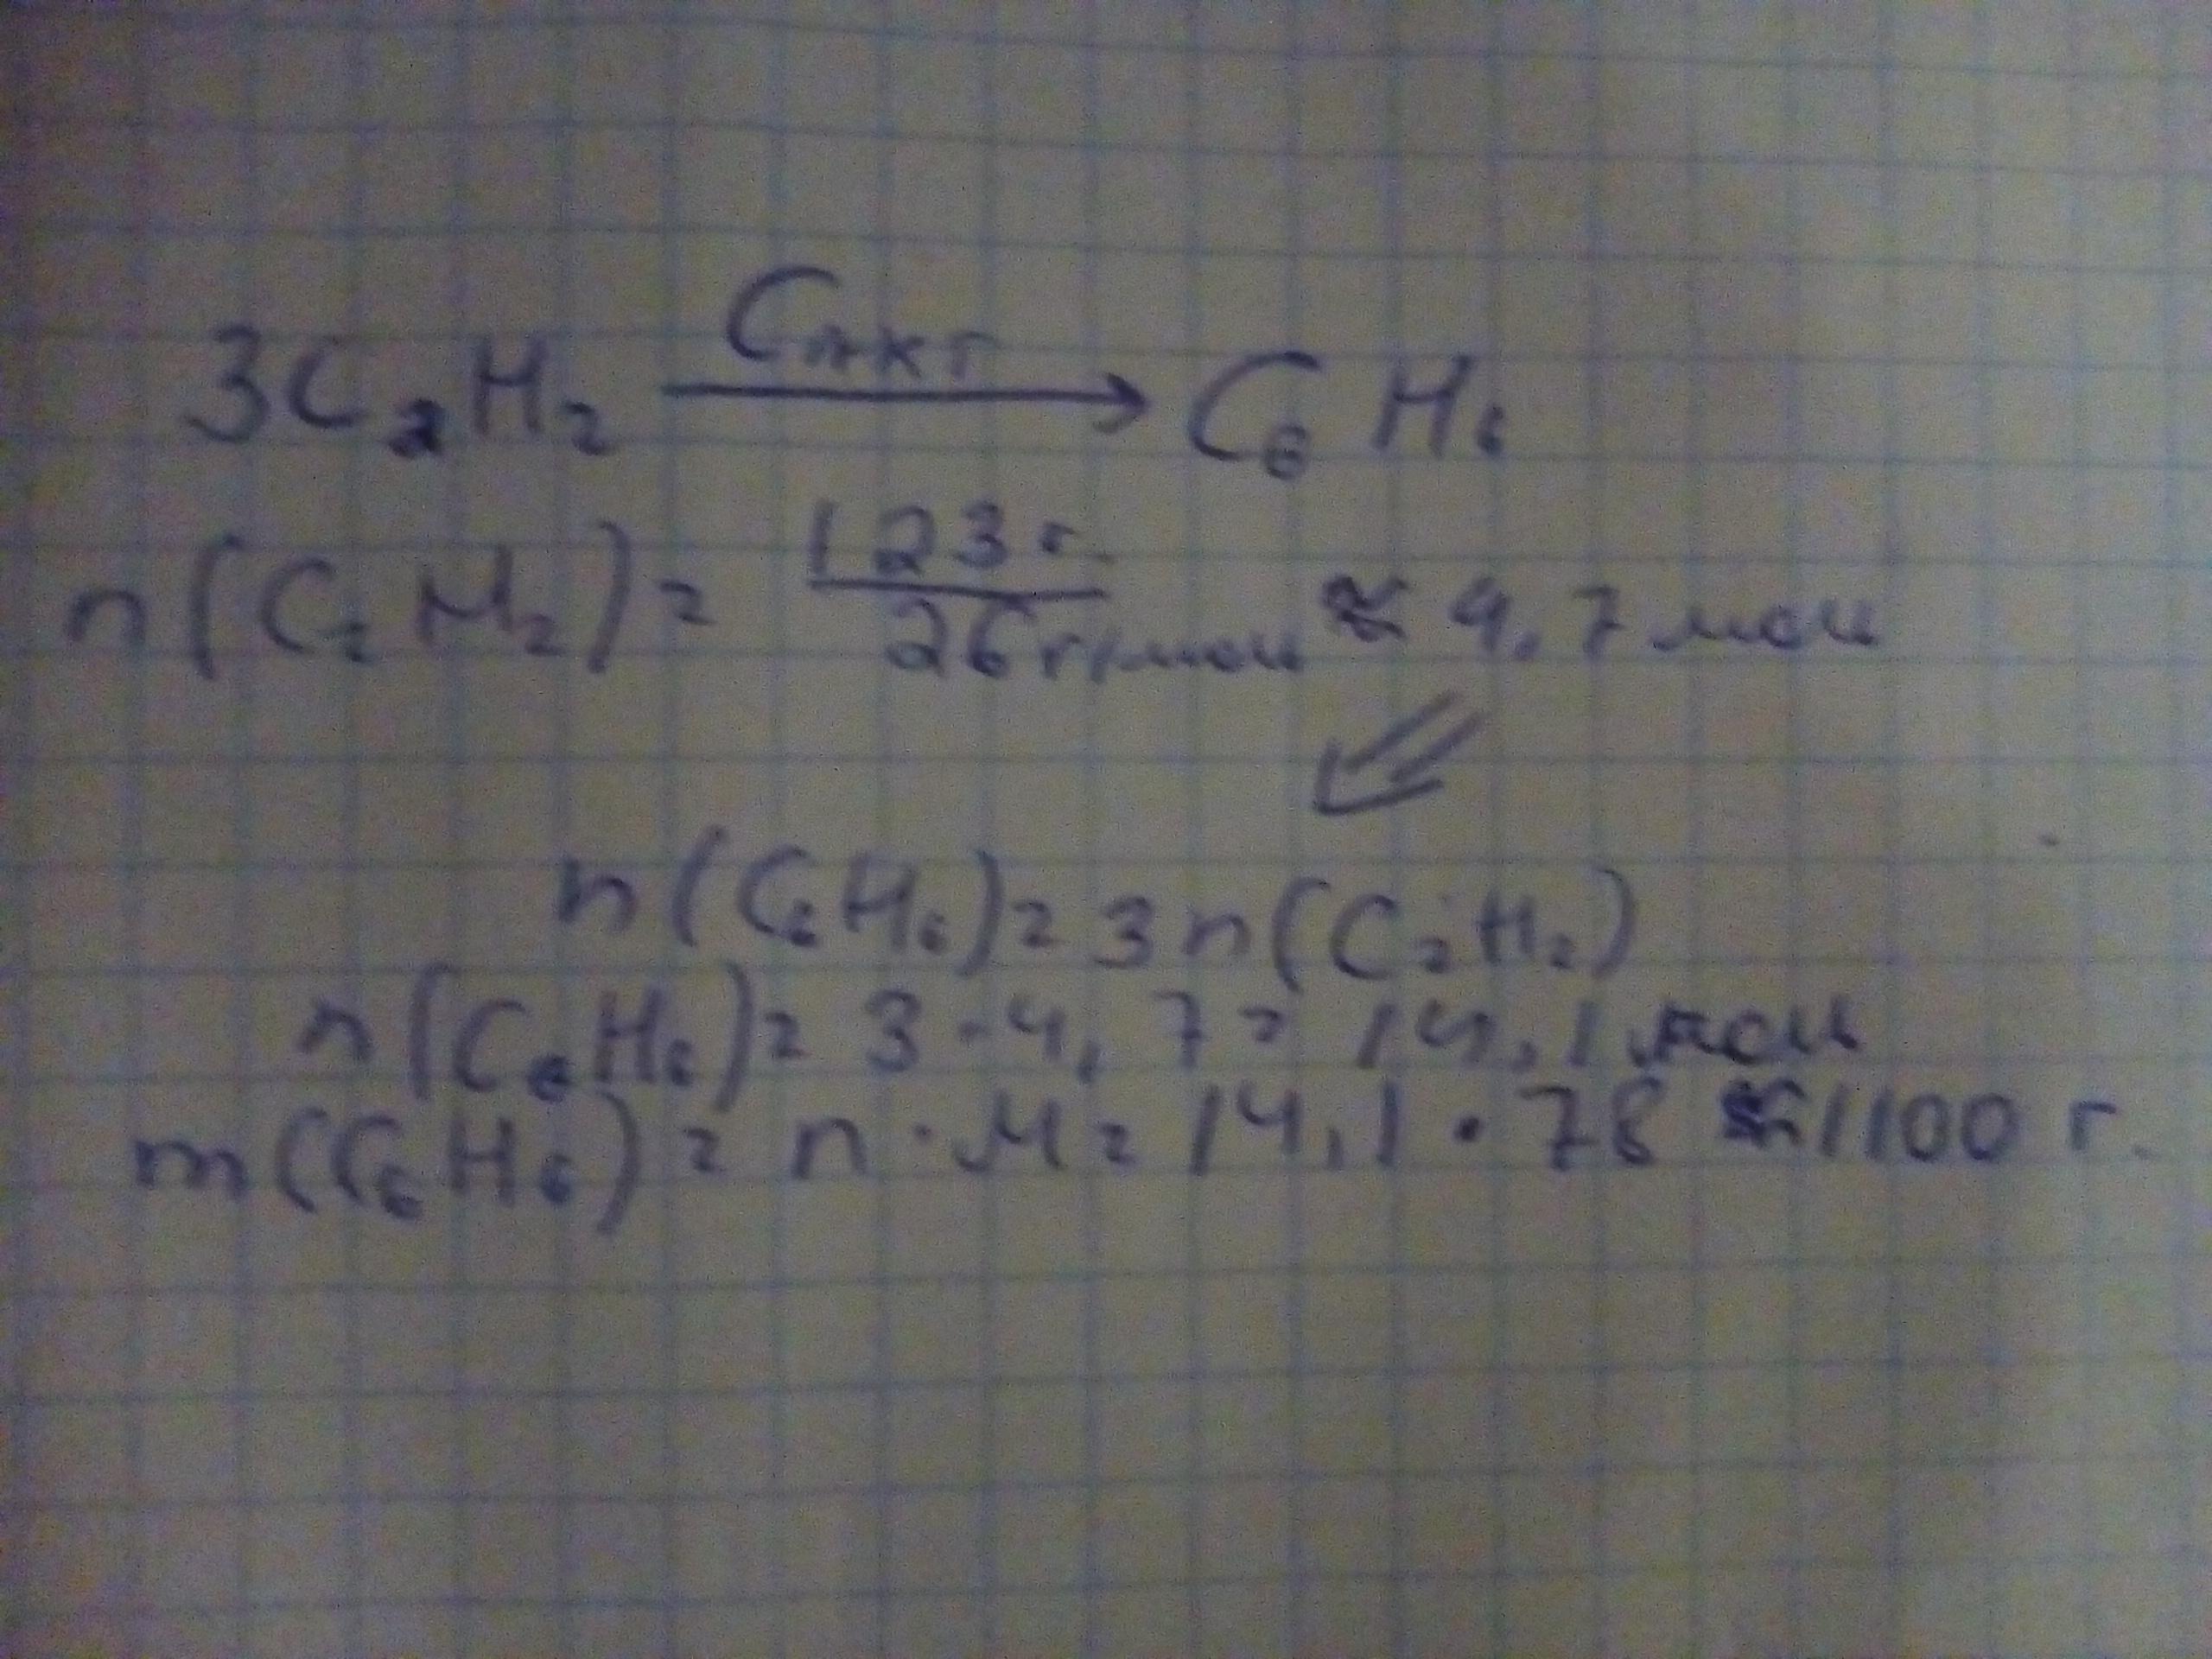 3C₂H₂ —Cакт→ C₆H₆
n(C₂H₂) = 123 г / 26 г/моль ≈ 4,7 моль
n(C₆H₆) = 3n(C₂H₂)
n(C₆H₆) = 3·4,7 = 14,1 моль
m(C₆H₆) = n·M = 14,1·78 ≈ 1100 г.